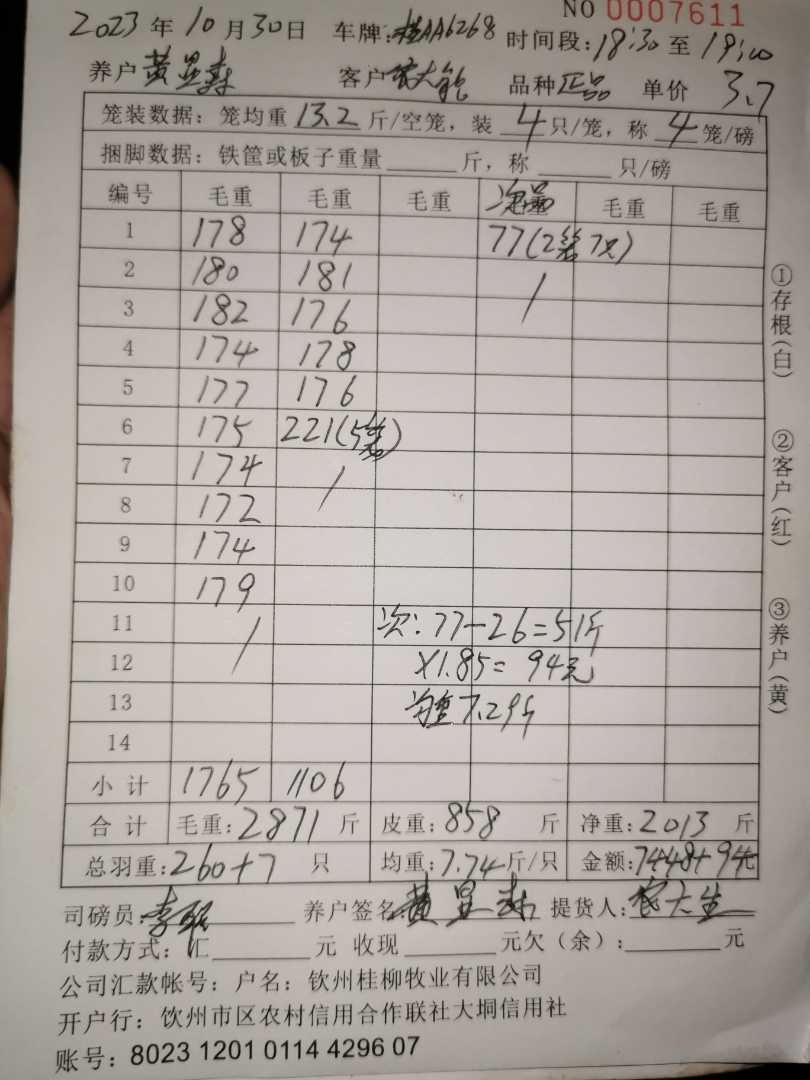 NO 0007611
2023年10月30日 车牌:桂AA6268 时间段:18:30至19:00
养户 黄显森 客户 农大 品种 正品 单价 3.7
笼装数据: 笼均重 13.2 斤/空笼, 装 4 只/笼, 称 4 笼/磅
捆脚数据: 铁筐或板子重量 斤, 称 只/磅
编号 毛重 毛重 毛重 次品 毛重 毛重
1 178 174 77(2笼7只)
2 180 181 /
3 182 176
4 174 178
5 177 176
6 175 221(5笼)
7 174 /
8 172
9 174
10 179
11 / 次: 77-26=51斤
12 ×1.85= 94元
13 均重7.29斤
14
小计 1765 1106
合计 毛重: 2871 斤 皮重: 858 斤 净重: 2013 斤
总羽重: 260+7 只 均重: 7.74斤/只 金额: 7448+94元
司磅员: 李 养户签名 黄显森 提货人: 农大生
付款方式: 汇 元 收现 元欠(余): 元
公司汇款帐号: 户名: 钦州桂柳牧业有限公司
开户行: 钦州市区农村信用合作联社大垌信用社
账号: 8023 1201 0114 4296 07
①存根(白)
②客户(红)
③养户(黄)